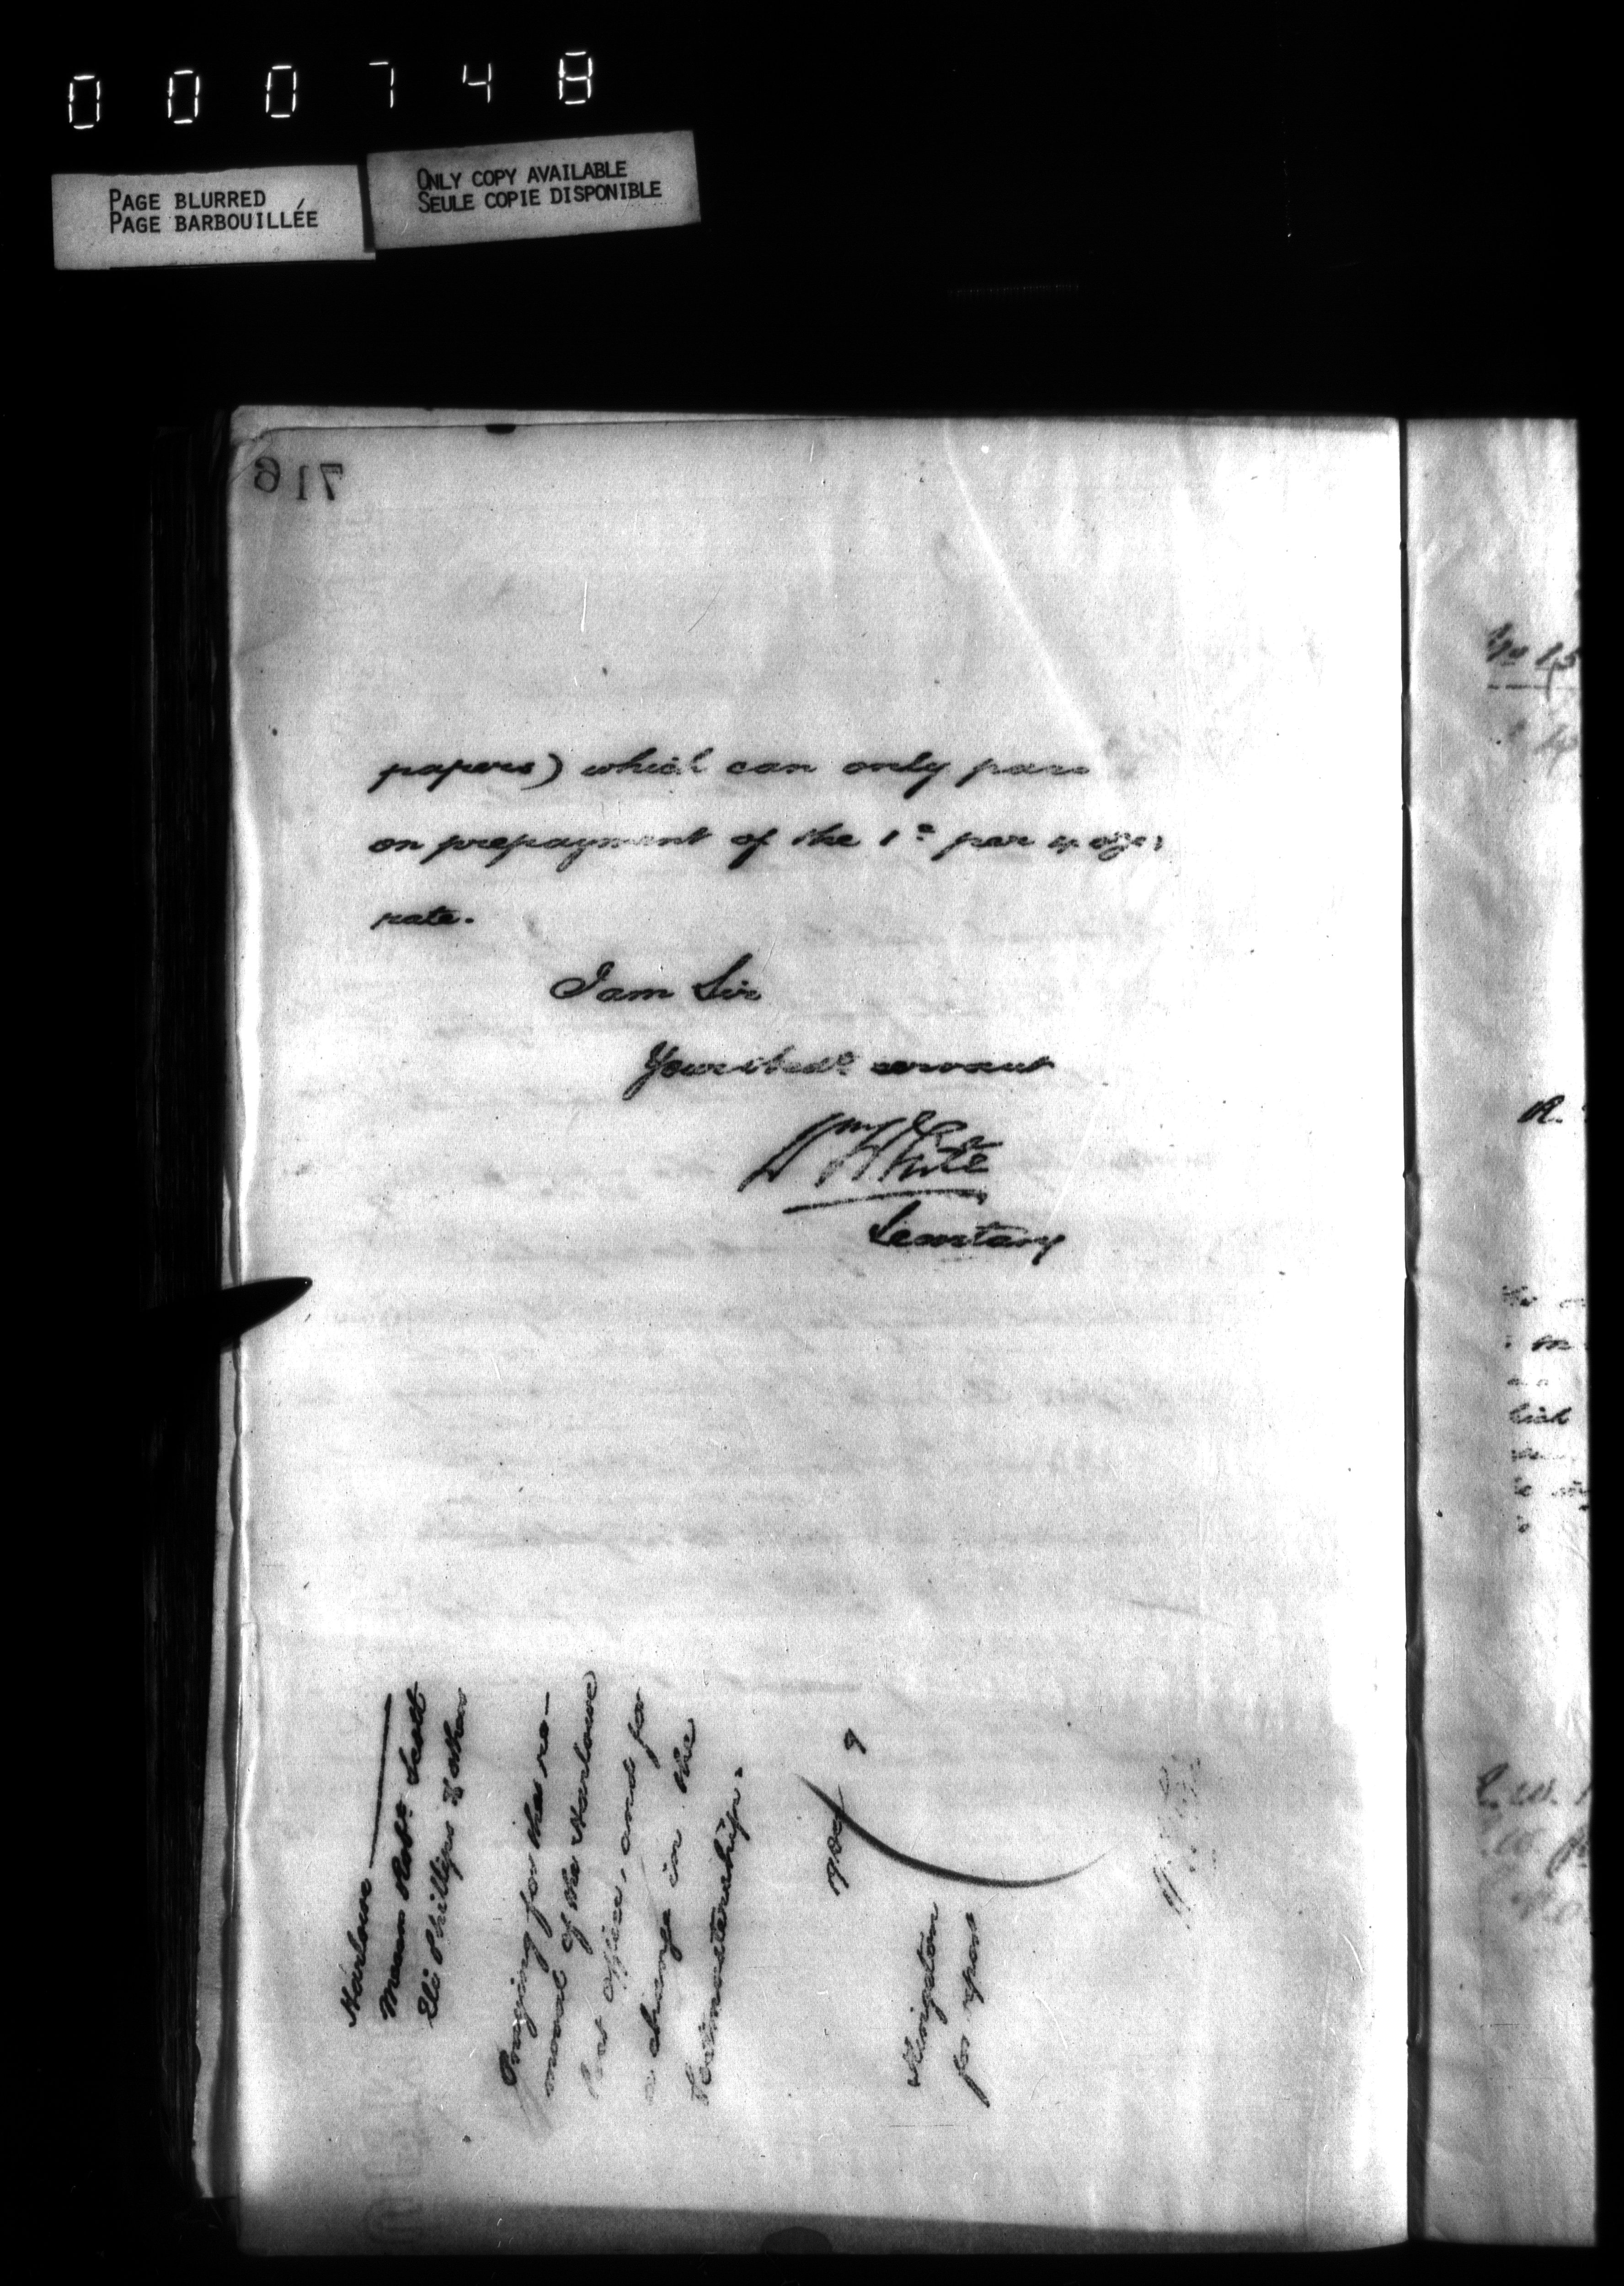 000748
PAGE BLURRED
PAGE BARBOUILLÉE
ONLY COPY AVAILABLE
SEULE COPIE DISPONIBLE
716
papers) which can only pass
on prepayment of the 1c per 4 ozs
rate.
I am Sir
Your obedt servant
Wm White
Secretary
Harlowe
Messrs Robt. Scott
Eli Phillips & others
Praying for the re-
moval of the Harlowe
Post office, and for
a change in the
Postmastership.
9
Kingston
for report